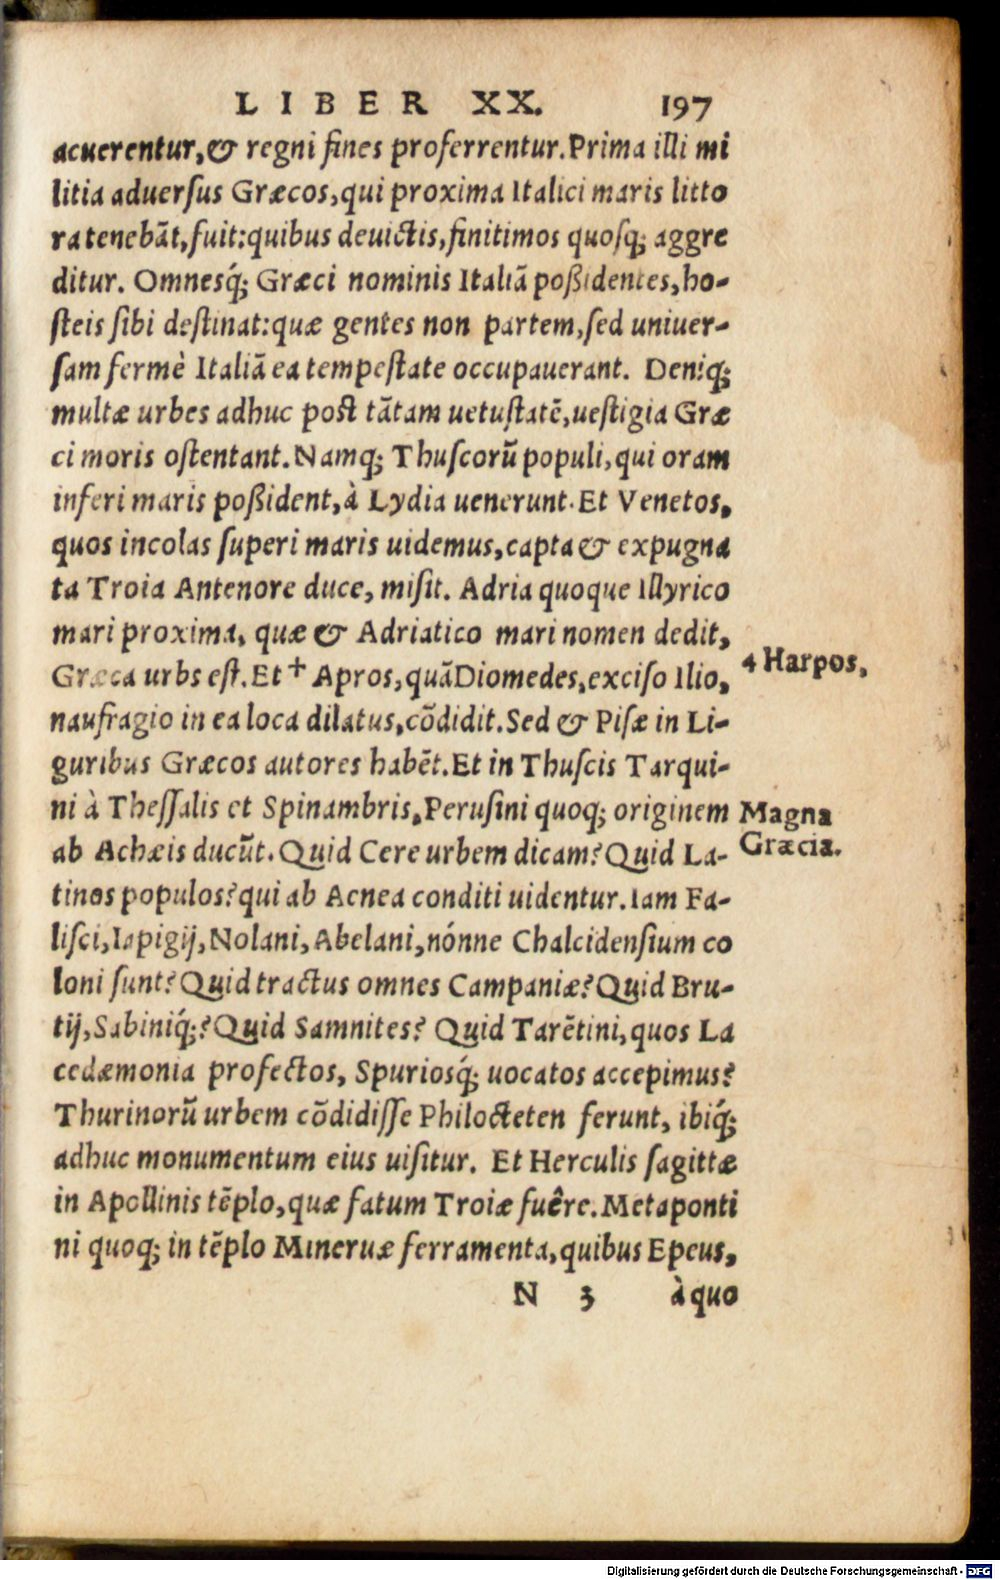 LIBER XX. 197
acuerentur,& regni fines proferrentur.Prima illi mi
litia aduerſus Græcos,qui proxima Italici maris litto
ra tenebāt,fuit:quibus deuictis,finitimos quoſq; aggre
ditur. Omnesq́; Græci nominis Italiā poßidentes,ho-
ſteis ſibi deſtinat:quæ gentes non partem,ſed uniuer-
ſam fermè Italiā ea tempeſtate occupauerant. Deniq;
multæ urbes adhuc poſt tātam uetuſtatē,ueſtigia Græ
ci moris oſtentant.Namq; Thuſcorū populi,qui oram
inferi maris poßident,à Lydia uenerunt.Et Venetos,
quos incolas ſuperi maris uidemus,capta & expugna
ta Troia Antenore duce, miſit. Adria quoque Illyrico
mari proxima, quæ & Adriatico mari nomen dedit,
Græca urbs eſt.Et + Apros,quā Diomedes,exciſo Ilio,
4 Harpos,
naufragio in ea loca dilatus,cōdidit.Sed & Piſæ in Li-
guribus Græcos autores habēt.Et in Thuſcis Tarqui-
ni à Theſſalis et Spinambris.Peruſini quoq; originem
Magna
Græcia.
ab Achæis ducūt.Quid Cere urbem dicam?Quid La-
tinos populos?qui ab Aenea conditi uidentur.Iam Fa-
liſci,Iapigij,Nolani,Abelani,nónne Chalcidenſium co
loni ſunt?Quid tractus omnes Campaniæ?Quid Bru-
tij,Sabiniq́;?Quid Samnites? Quid Tarētini,quos La
cedæmonia profectos, Spuriosq́; uocatos accepimus?
Thurinorū urbem cōdidiſſe Philocteten ferunt, ibiq́;
adhuc monumentum eius uiſitur. Et Herculis ſagittæ
in Apollinis tēplo,quæ fatum Troiæ fuêre.Metaponti
ni quoq; in tēplo Mineruæ ferramenta,quibus Epeus,
N 3 à quo
Digitalisierung gefördert durch die Deutsche Forschungsgemeinschaft - DFG